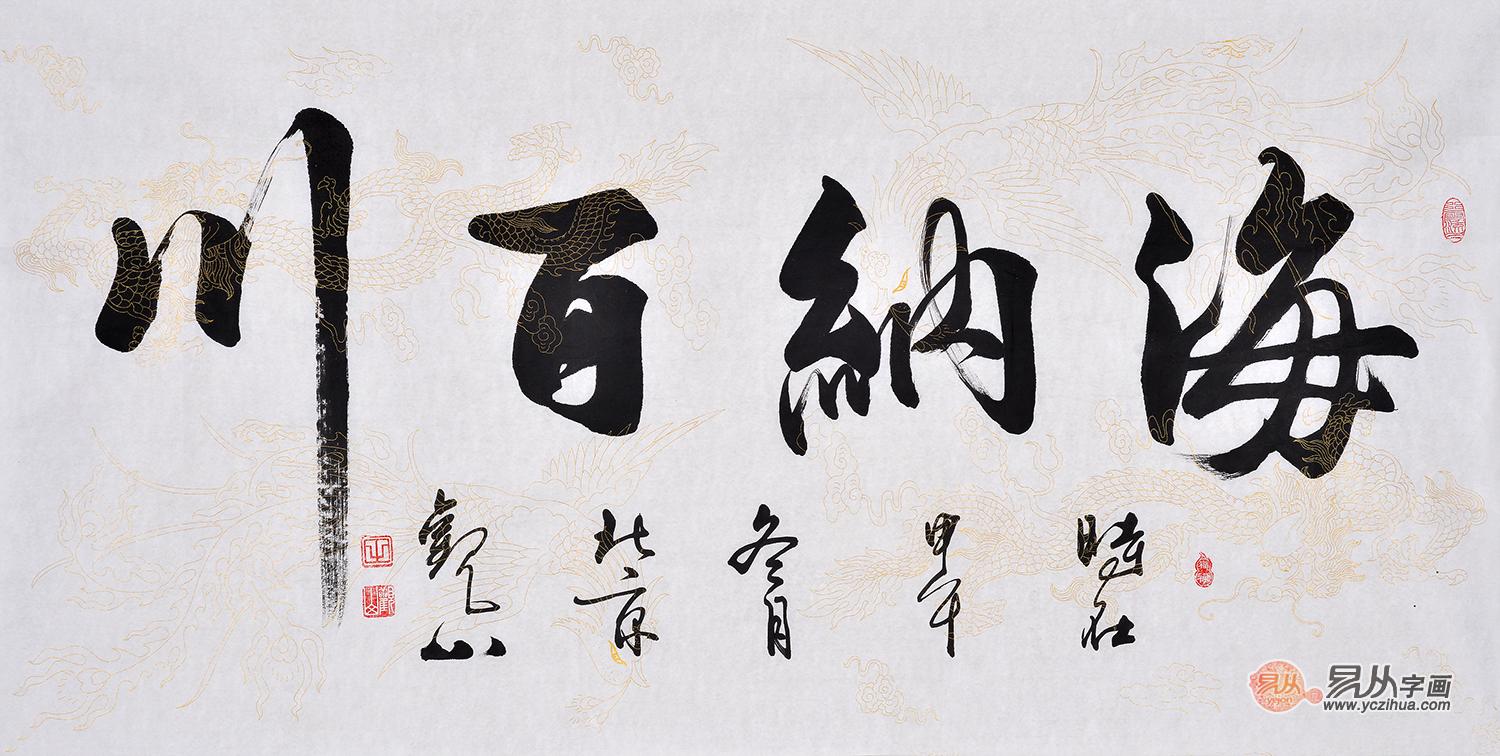 海納百川
時在
甲午
冬月
北京
觀山
易从字画
www.yczihua.com